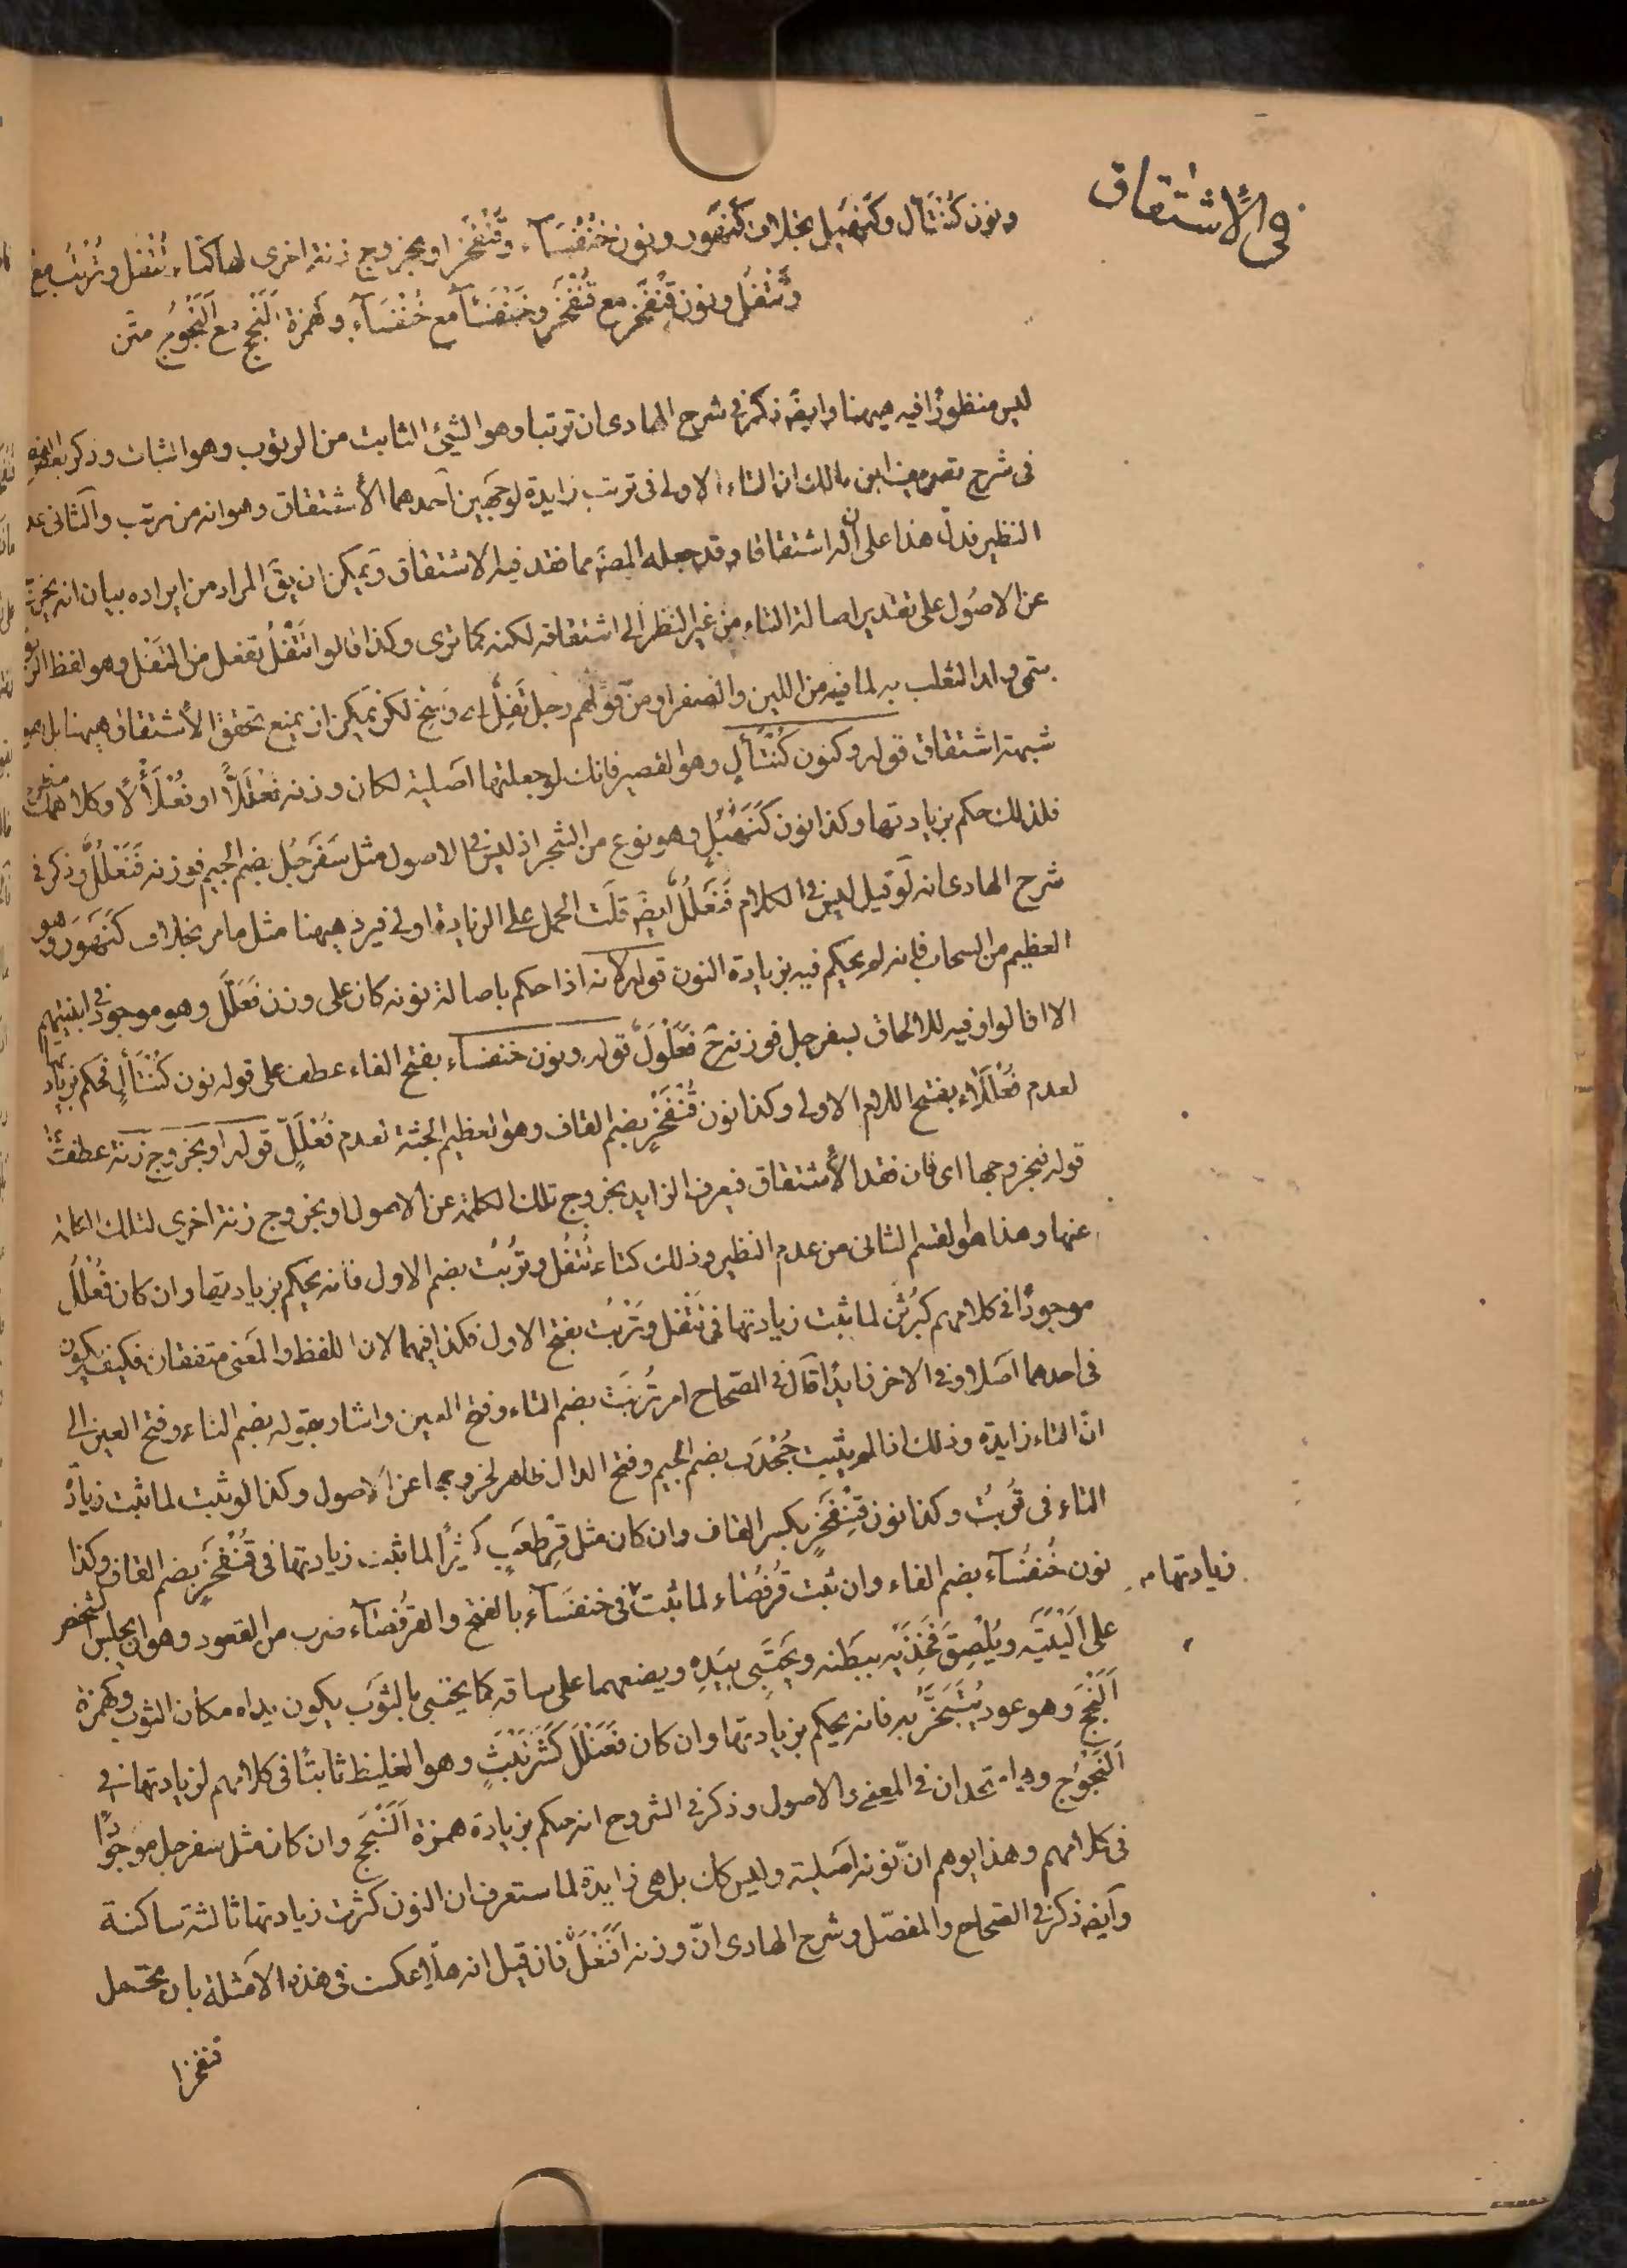 في الاشتقاق
ونون كُنْتَأْل وكَنَهْبُل بخلاف كَنَهْوَر ونون خُنْفَسَآء وقُنْفَخْر او بخروج زنة اخرى لها كتاء تُتْفُل وتُرْتُب مع
وتَتْفُل ونون قِنْفَخْر مع قُنْفَخْر وخُنْفُسَآء مع خُنْفَسَآء وهمزة اَلَنْجَج مع اَلَنْجُوج متن
ليس منظورًا فيه ههنا وايضًا ذكر في شرح الهادى ان ترتبا وهو الشئ الثابت من الرتوب وهو الثبات وذكر
في شرح تصريف ابن مالك ان التاء الاولى في ترتب زايدة لوجهين احدهما الأشتقاق وهو انه من رتب والثانى عد
النظير فدلّ هذا على ان له اشتقاقا وقد جعله المصَ مما فقد فيه الاشتقاق ويمكن ان يقَ المراد من ايراده بيان انه يخرج
عن الاصُول على تقدير اصالة التاء من غير النظر الى اشتقاقه لكنه كما ترى وكذا قالوا تَتْفُل تفعل من التفل وهو لفظ
سمّى ولد الثعلب به لما فيه من اللين والصغر او من قولهم رجل تَفِلٌ اى وَسِخ لكن يمكن ان يمنع تحقق الأشتقاق ههنا بل هو
شبهة اشتقاق قوله وكنون كُنْتَأْلٍ وهو القصير فانك لو جعلتها اصلية لكان وزنه فُعْلَلًّا او فُعْلَأْلًا وكلاهما
فلذلك حكم بزيادتها وكذا نون كَنَهْبُلٍ وهو نوع من الشجر اذ ليس في الاصول مثل سَفَرجُل بضم الجيم فوزنه فَنَعْلُلٌ وذكر في
شرح الهادى انه لو قيل ليس في الكلام فَنَعْلُلٌ ايضَ قلت الحمل على الزيادة اولى فيرد ههنا مثل ما مر بخلاف كَنَهْوَرٍ وهو
العظيم من السحاب فانه لم يحكم فيه بزيادة النون قوله لانه اذا حكم باصالة نونه كان على وزن فَعَلَّل وهو موجود في ابنيتهم
الا قالوا وفيه للالحاق بسفرجل فوزنه حَ فَعَلْوَلٌ قوله ونون خنفساء بفتح الفاء عطف على قوله نون كُنْتَأْلٍ فحكم بزيادتها
لعدم فُعْلَلَاء بفتح اللام الاولى وكذا نون قُنْفَخْرٍ بضم القاف وهو العظيم الجثة لعدم فُعْلَلٍّ قوله او بخروج زنة عطف على
قوله فبخروجها اى فان فقد الأشتقاق فيعرف الزايد بخروج تلك الكلمة عن الاصول او بخروج زنة اخرى لتلك الكلمة
عنها وهذا هو القسم الثانى من عدم النظير وذلك كتاء تُتْفُل وتُرْتُب بضم الاول فانه يحكم بزيادتها وان كان فُعْلُلٌ
موجودًا في كلامهم كبُرْثُن لما ثبت زيادتها في تَتْفُل وتَرْتُب بفتح الاول فكذا فيهما لان اللفظ والمعنى متفقان فكيف يكون
في احدهما اصلا وفى الاخر زايدًا قال في الصّحاح امر تُرْتَبٌ بضم التاء وفتح العين واشار بقوله بضم التاء وفتح العين الى
انّ التاء زايدة وذلك اذا لم يثبت جُخْدَب بضم الجيم وفتح الدال ظاهر لخروجها عن الاصول وكذا لو ثبت لما ثبت زيادة
التاء في تَرْتُب وكذا نون قِنْفَخْرٍ بكسر القاف وان كان مثل قِرْطَعْبٍ كثيرًا لما ثبت زيادتها في قُنْفَخْرٍ بضم القاف وكذا
نون خُنفُسَآء بضم الفاء وان ثبت قُرْفُصَاء لما ثبت في خنفَسَآء بالفتح والقرفُصَآء ضرب من القعود وهو ان يجلس الشخص
زيادتها
على اَلْيَتَيْه ويُلْصِقَ فَخِذَيْه ببَطْنه ويَحْتَبى بيَدَيْه ويضعهما على ساقيه كما يحتبى بالثوَب يكون يداه مكان الثوب وكهمزة
اَلَنْجَجٍ وهو عود يُتَبَخَّرُ به فانه يحكم بزيادتها وان كان فَعَنْلَل كَشَرَنْبَثٍ وهو الغليظ ثابتًا في كلامهم لزيادتها في
اَلَنْجُوج وهما متحدان في المعنى والاصول وذكر في الشروح انه حكم بزيادة همزة اَلَنْجَج وان كان مثل سفرجل موجودًا
في كلامهم وهذا يوهم انّ نونه اصلية وليس كك بل هى زايدة لما ستعرف ان النون كثرت زيادتها ثالثة ساكنة
وايضَ ذكر في الصّحاح والمفصّل وشرح الهادى انّ وزنه اَفَنْعَلٌ فان قيل انه هلّا عكست في هذه الامثلة بان يحتمل